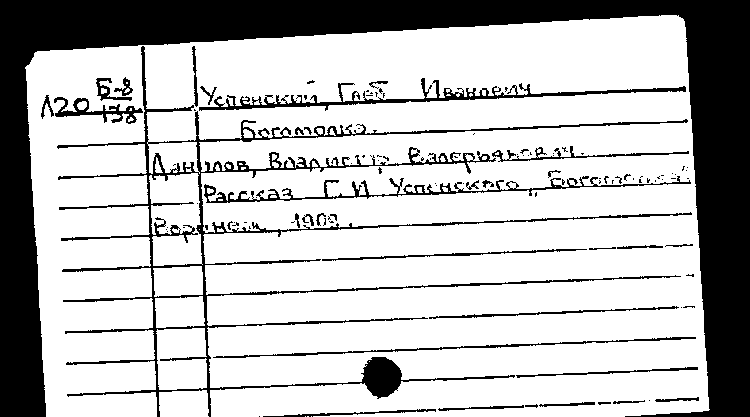 Л20 Б-8/138
Успенский, Глеб Иванович
Богомолка.
Данилов, Владимир Валерьянович.
Рассказ Г. И. Успенского „Богомолка“.
Воронеж, 1909.